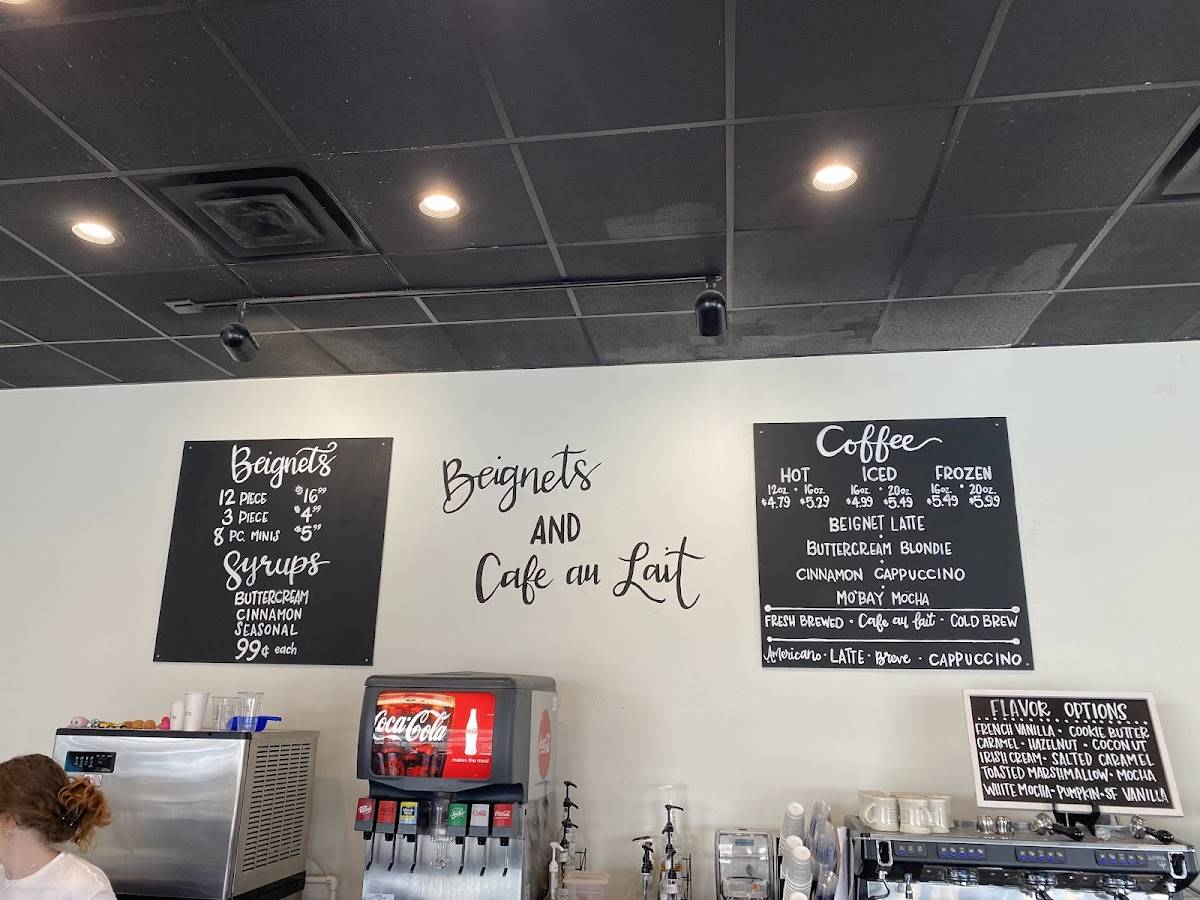 Beignets
12 PIECE $16.99
3 PIECE $4.99
8 PC. MINIS $5.99
Syrups
BUTTERCREAM
CINNAMON
SEASONAL
99¢ each
Beignets
AND
Cafe au Lait
Coffee
HOT ICED FROZEN
12oz. • 16oz. 16oz. • 20oz. 16oz. • 20oz.
$4.79 $5.29 $4.99 $5.49 $5.49 $5.99
BEIGNET LATTE
BUTTERCREAM BLONDIE
CINNAMON CAPPUCCINO
MO'BAY MOCHA
FRESH BREWED • Cafe au lait • COLD BREW
Americano • LATTE • Breve • CAPPUCCINO
FLAVOR OPTIONS
FRENCH VANILLA • COOKIE BUTTER
CARAMEL • HAZELNUT • COCONUT
IRISH CREAM • SALTED CARAMEL
TOASTED MARSHMALLOW • MOCHA
WHITE MOCHA • PUMPKIN • SF VANILLA
Coca-Cola
makes the meal